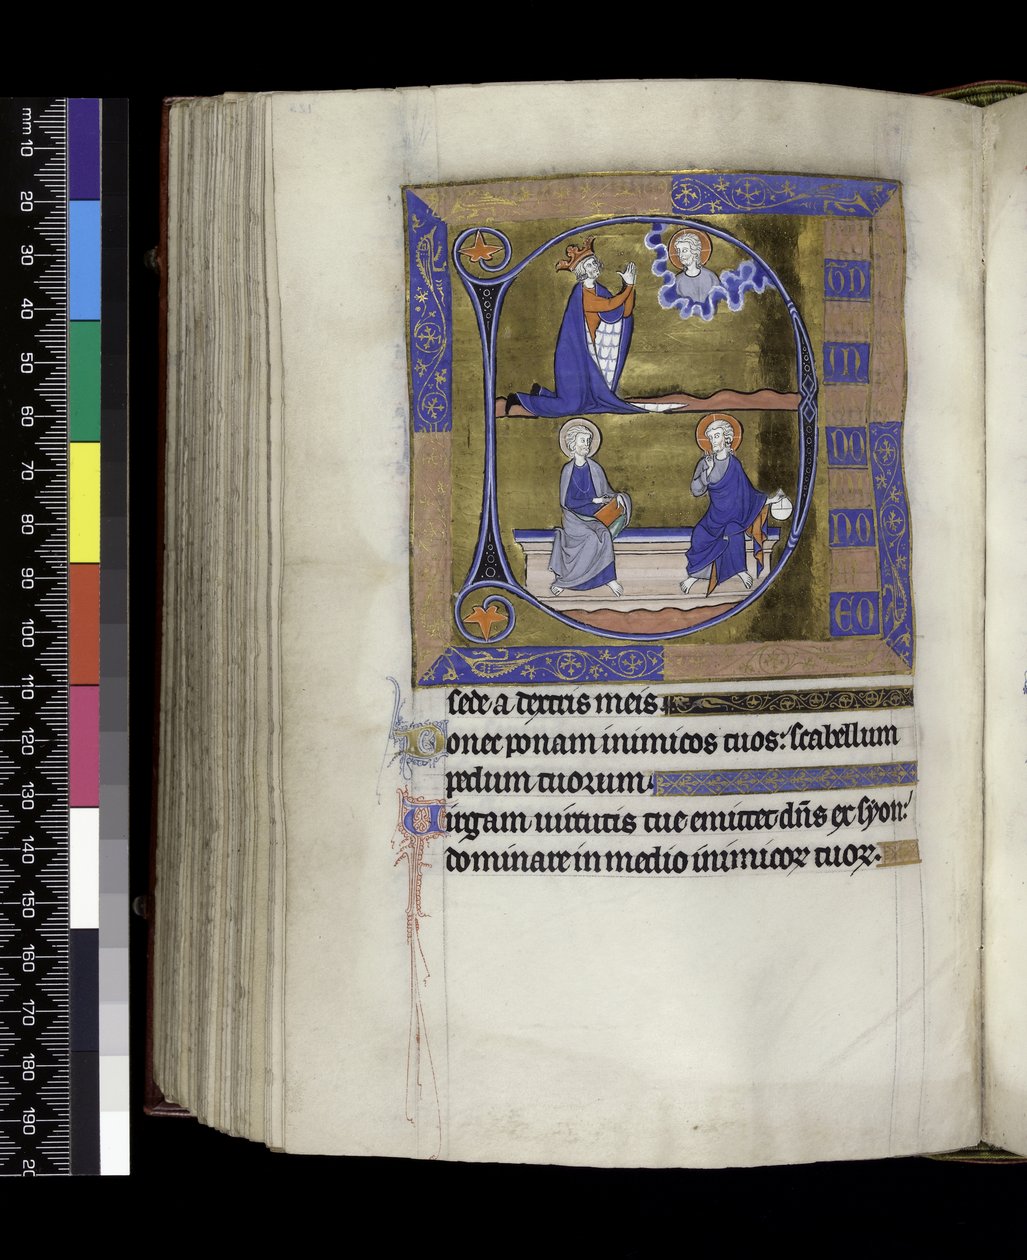 NO
EO
sede a dextris meis.
Donec ponam inimicos tuos: scabellum
pedum tuorum.
Virgam uirtutis tue emittet dn̄s ex syon:
dominare in medio inimicoꝝ tuoꝝ.
mm 10
20
30
40
50
60
70
80
90
100
110
120
130
140
150
160
170
180
190